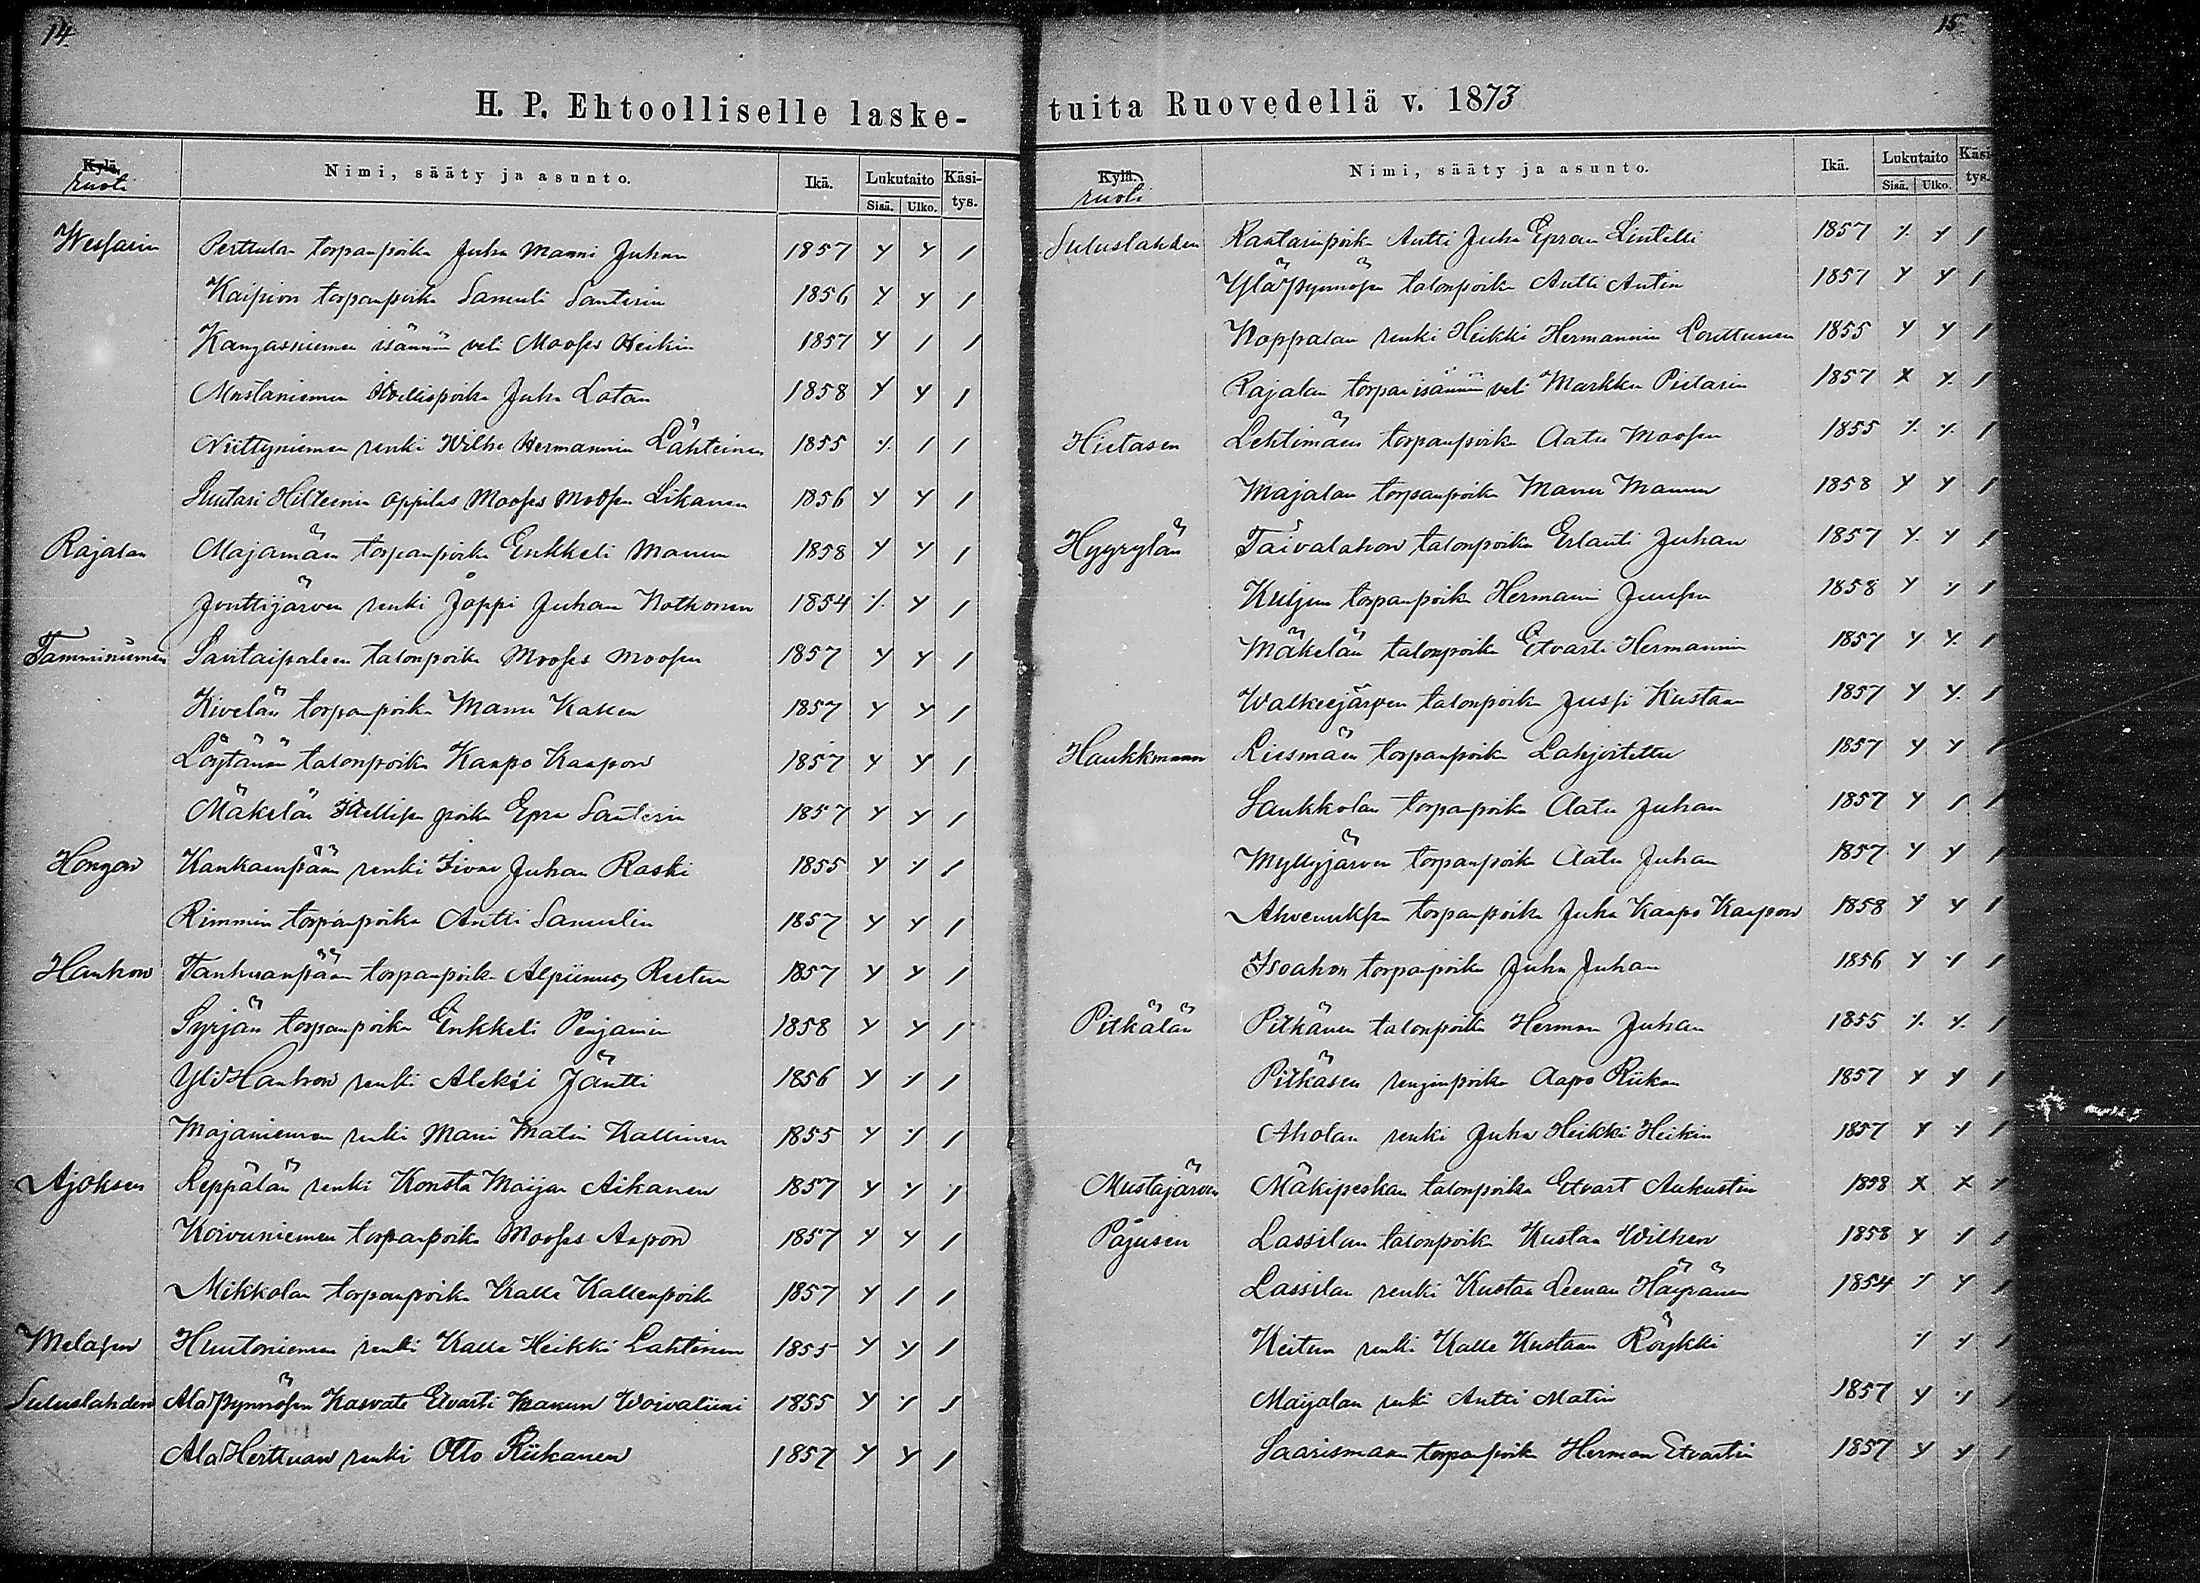 14.
H. P. Ehtoolliselle laske-
Kylä. Nimi, sääty ja asunto. Ikä. Lukutaito Käsi-
ruoti Sisä. Ulko. tys.
Perttulan torpanpoika Juha Manni Juhan 1857 y y /
Kaipion torpanpoika Samuli Santerin 1856 y y /
Kangasniemen isännän veli Mooses Heikin 1857 y / /
Mustaniemen itellispoika Juha Lotan 1858 y y /
Niittyniemen renki Wilho Hermannin Lähteinen 1855 ⁒ / /
Suutari oppilas Mooses Moosen Likanen 1856 y y /
Rajalan Majamäen torpanpoika Enkkeli Manun 1858 y y /
Jouttijärven renki Joppi Juhan Kotkonen 1854 ⁒ y /
Tamminiemen Santaipaleen talonpoika Mooses Moosen 1857 y y /
Kivelän torpanpoika Manu Kallen 1857 y y /
Löytänän talonpoika Kaapo Kaapon 1857 y y /
Mäkelän itellisen poika Epra Santerin 1857 y y /
Hongon Kankaanpään renki Iivar Juhan Raski 1855 y y /
Rimmin torpanpoika Antti Samulin 1857 y y /
Hauhon Tanhuanpään torpanpoika Alpiinus Reetun 1857 y y /
Syrjän torpanpoika Enkkeli Penjamin 1858 y y /
Yli Hauhon renki Aleksi Jäntti 1856 y y /
Majaniemen renki Mani Matin Kallinen 1855 y y /
Ajoksen Reppälän renki Konsta Maijan Aikanen 1857 y y /
Koivuniemen torpanpoika Mooses Aapon 1857 y y /
Mikkolan torpanpoika Kalle Kallenpoika 1857 y / /
Melasen Huutoniemen renki Kalle Heikki Lahtinen 1855 y y /
Suluslahden Ala Pynnösen Kasvate Etvarti Manun Woivaliini 1855 y y /
Ala Herttuan renki Otto Riikanen 1857 y y /
15.
tuita Ruovedellä v. 1873
Kylä. Nimi, sääty ja asunto. Ikä. Lukutaito Käsi-
ruoti Sisä. Ulko. tys.
Suluslahden Rantarinpoika Antti Juha Epran Lintelli 1857 ⁒ y /
Ylä Pynnösen talonpoika Antti Antin 1857 y y /
Koppalan renki Heikki Hermannin Louttunen 1855 y y /
Rajalan torpan isännän veli Markku Pietarin 1857 x y /
Hietasen Lehtimäen torpanpoika Aatu Moosen 1855 ⁒ ⁒ /
Majalan torpanpoika Manu Manun 1858 y y /
Hyyrylän Taivalahon talonpoika Erlanti Juhan 1857 y y /
Kuljun torpanpoika Hermanni Juusen 1858 y y /
Mäkelän talonpoika Etvarti Hermannin 1857 y y /
Walkeejärven talonpoika Jussi Kustaan 1857 y y /
Haukkmaan Liesmäen torpanpoika Lahjoitettu 1857 y y /
Saukkolan torpanpoika Aatu Juhan 1857 y / /
Myllyjärven torpanpoika Aatu Juhan 1857 y y /
Ahvenuksen torpanpoika Juha Kaapo Kaapon 1858 y y /
Isoahon torpanpoika Juha Juhan 1856 y y /
Pitkälän Pitkänen talonpoika Herman Juhan 1855 ⁒ ⁒ /
Pitkäsen renginpoika Aapo Riikan 1857 y y /
Aholan renki Juha Heikki Heikin 1857 y y /
Mustajärven Mäkipeskan talonpoika Etvart Aukustin 1858 x x /
Pajusen Lassilan talonpoika Kustaa Wilhen 1858 y y /
Lassilan renki Kustaa Leenan Häyränen 1854 y y /
Keitun renki Kalle Kustaan Röykki y y /
Maijalan renki Antti Matin 1857 y y /
Saarismaan torpanpoika Herman Etvartin 1857 y y /